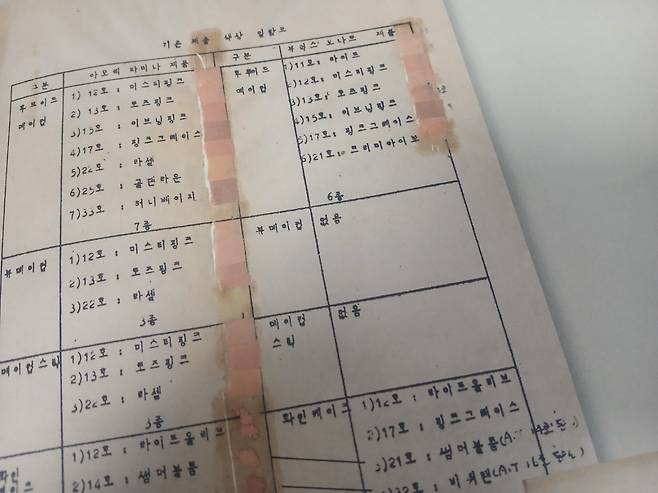 기존 제품 색상 일람표
구분 아모레 타미나 제품 구분 뷰티스 노나르 제품
후루이드 메이컵
1) 12호 : 미스티핑크
2) 13호 : 로즈핑크
3)15호 : 이브닝핑크
4)17호 : 핑크그레이스
5)22호 : 라셀
6)25호 : 골덴타운
7)33호 : 허니베이지
7종
후루이드 메이컵
1)11호: 라이트
2)12호: 미스티핑크
3)13호: 로즈핑크
4)15호: 이브닝핑크
5)17호: 핑크그레이스
6)21호: 크리미아이보
6종
뷰메이컵
1)12호 : 미스티핑크
2)13호 : 로즈핑크
3)22호 : 라셀
3종
뷰메이컵 없음
메이컵스틱
1)12호 : 미스티핑크
2)13호 : 로즈핑크
3)22호 : 라셀
3종
메이컵 스틱 없음
화인
1)12호 : 라이트올리브
2)14호 : 썸머블룸
화인케이크
1)12호 : 라이트올리브
2)17호 : 핑크그레이스
3)21호 : 썸머블룸(A.T